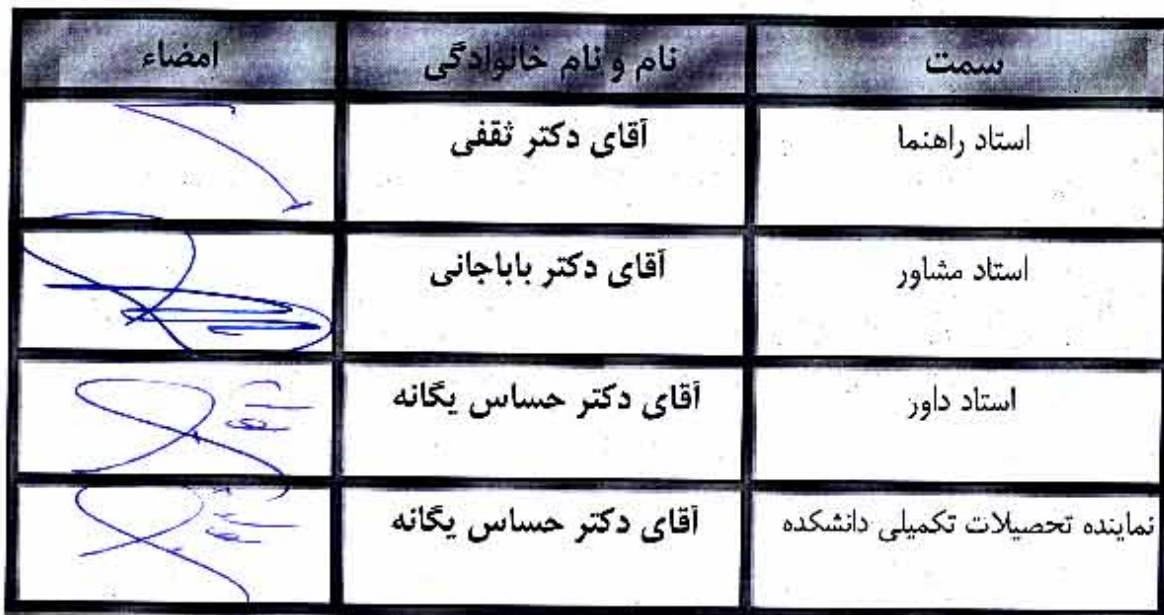 سمت نام و نام خانوادگی امضاء
استاد راهنما آقای دکتر ثقفی
استاد مشاور آقای دکتر باباجانی
استاد داور آقای دکتر حساس یگانه
نماینده تحصیلات تکمیلی دانشکده آقای دکتر حساس یگانه